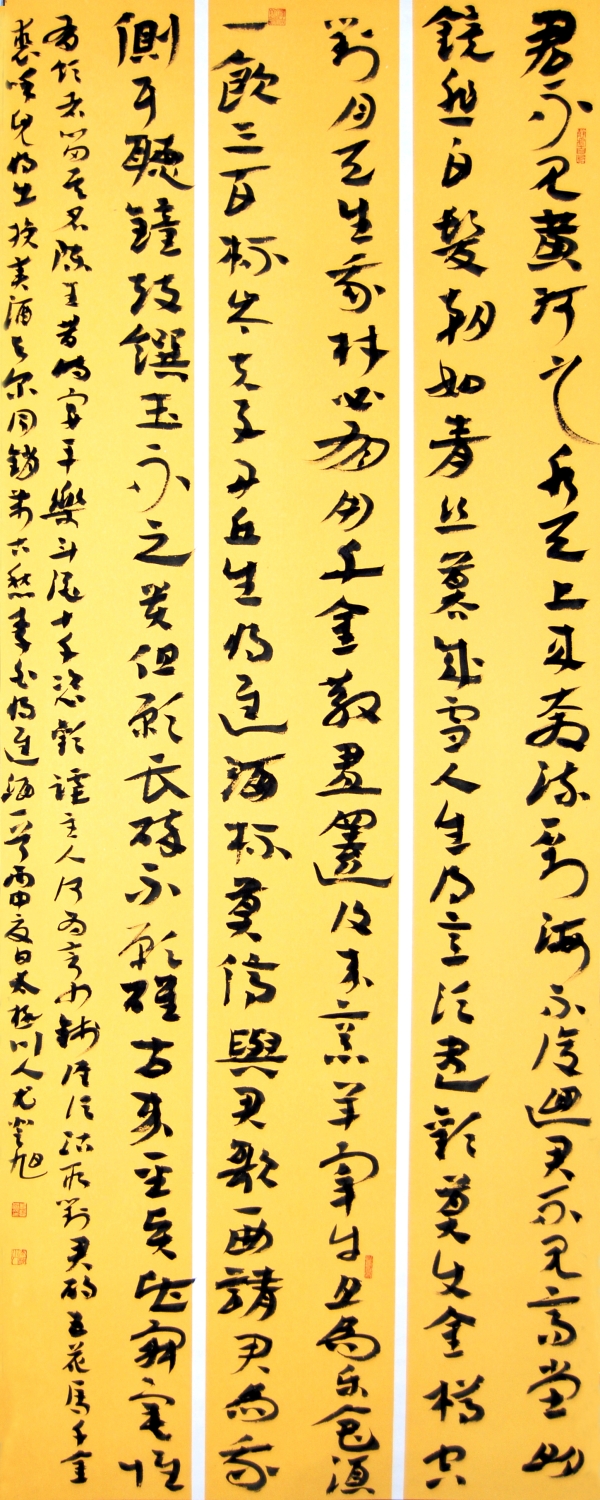 君不見黃河之水天上來奔流到海不復迴君不見高堂明
鏡悲白髮朝如青絲暮成雪人生得意須盡歡莫使金樽空
對月天生我材必有用千金散盡還復來烹羊宰牛且為樂會須
一飲三百杯岑夫子丹丘生將進酒杯莫停與君歌一曲請君為我
側耳聽鐘鼓饌玉不足貴但願長醉不願醒古來聖賢皆寂寞惟
有飲者留其名陳王昔時宴平樂斗酒十千恣歡謔主人何為言少錢徑須沽取對君酌五花馬千金
裘呼兒將出換美酒與爾同銷萬古愁李白將進酒一首丙申夏日太極川人尤